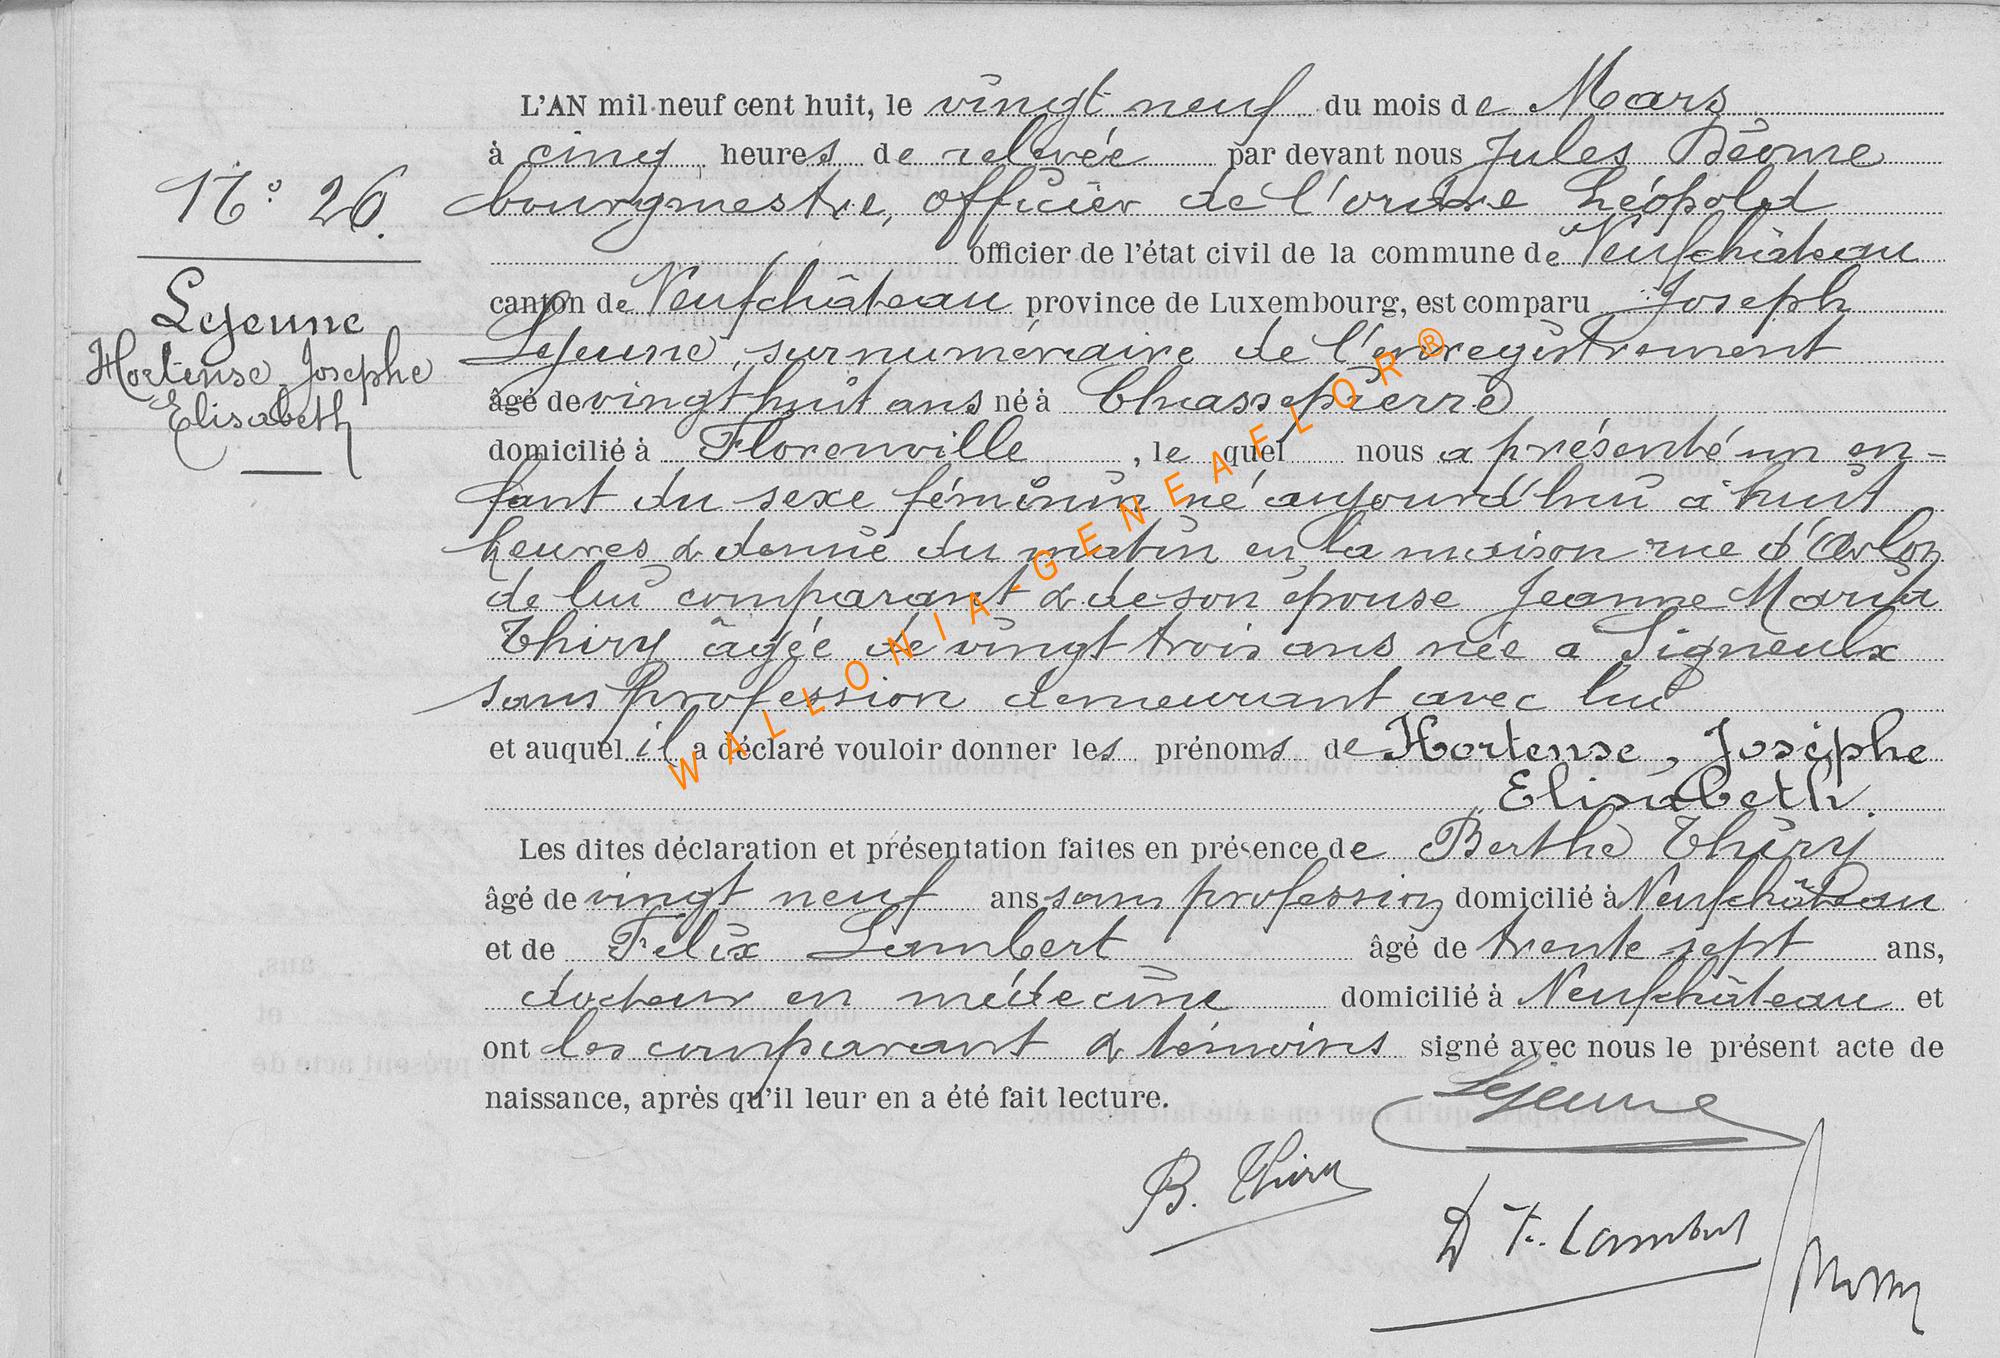 L'AN mil neuf cent huit, le vingt neuf du mois de Mars
à cinq heures de relevée par devant nous Jules
N° 26.
bourgmestre, officier de l'ordre Léopold
officier de l'état civil de la commune de Neufchâteau
Lejeune
Hortense, Josephe
Elisabeth
canton de Neufchâteau province de Luxembourg, est comparu Joseph
Lejeune, surnuméraire de l'enregistrement
âgé de vingt huit ans né à Chassepierre
domicilié à Florenville , le quel nous a présenté un en-
fant du sexe féminin né aujourd'hui à huit
heures & demie du matin en la maison rue d'Arlon
de lui comparant & de son épouse Jeanne Maria
Thiry âgée de vingt trois ans née a Signeulx
sans profession demeurant avec lui
et auquel il a déclaré vouloir donner les prénoms de Hortense, Joséphe
Elisabeth.
Les dites déclaration et présentation faites en présence de Berthe Thiry
âgé de vingt neuf ans sans profession domicilié à Neufchâteau
et de Felix Lambert âgé de trente sept ans,
docteur en médecine domicilié à Neufchâteau et
ont les comparant & témoins signé avec nous le présent acte de
naissance, après qu'il leur en a été fait lecture.
Lejeune
B. Thiry
D F. Lambert
WALLONIA-GENEAFLOR®